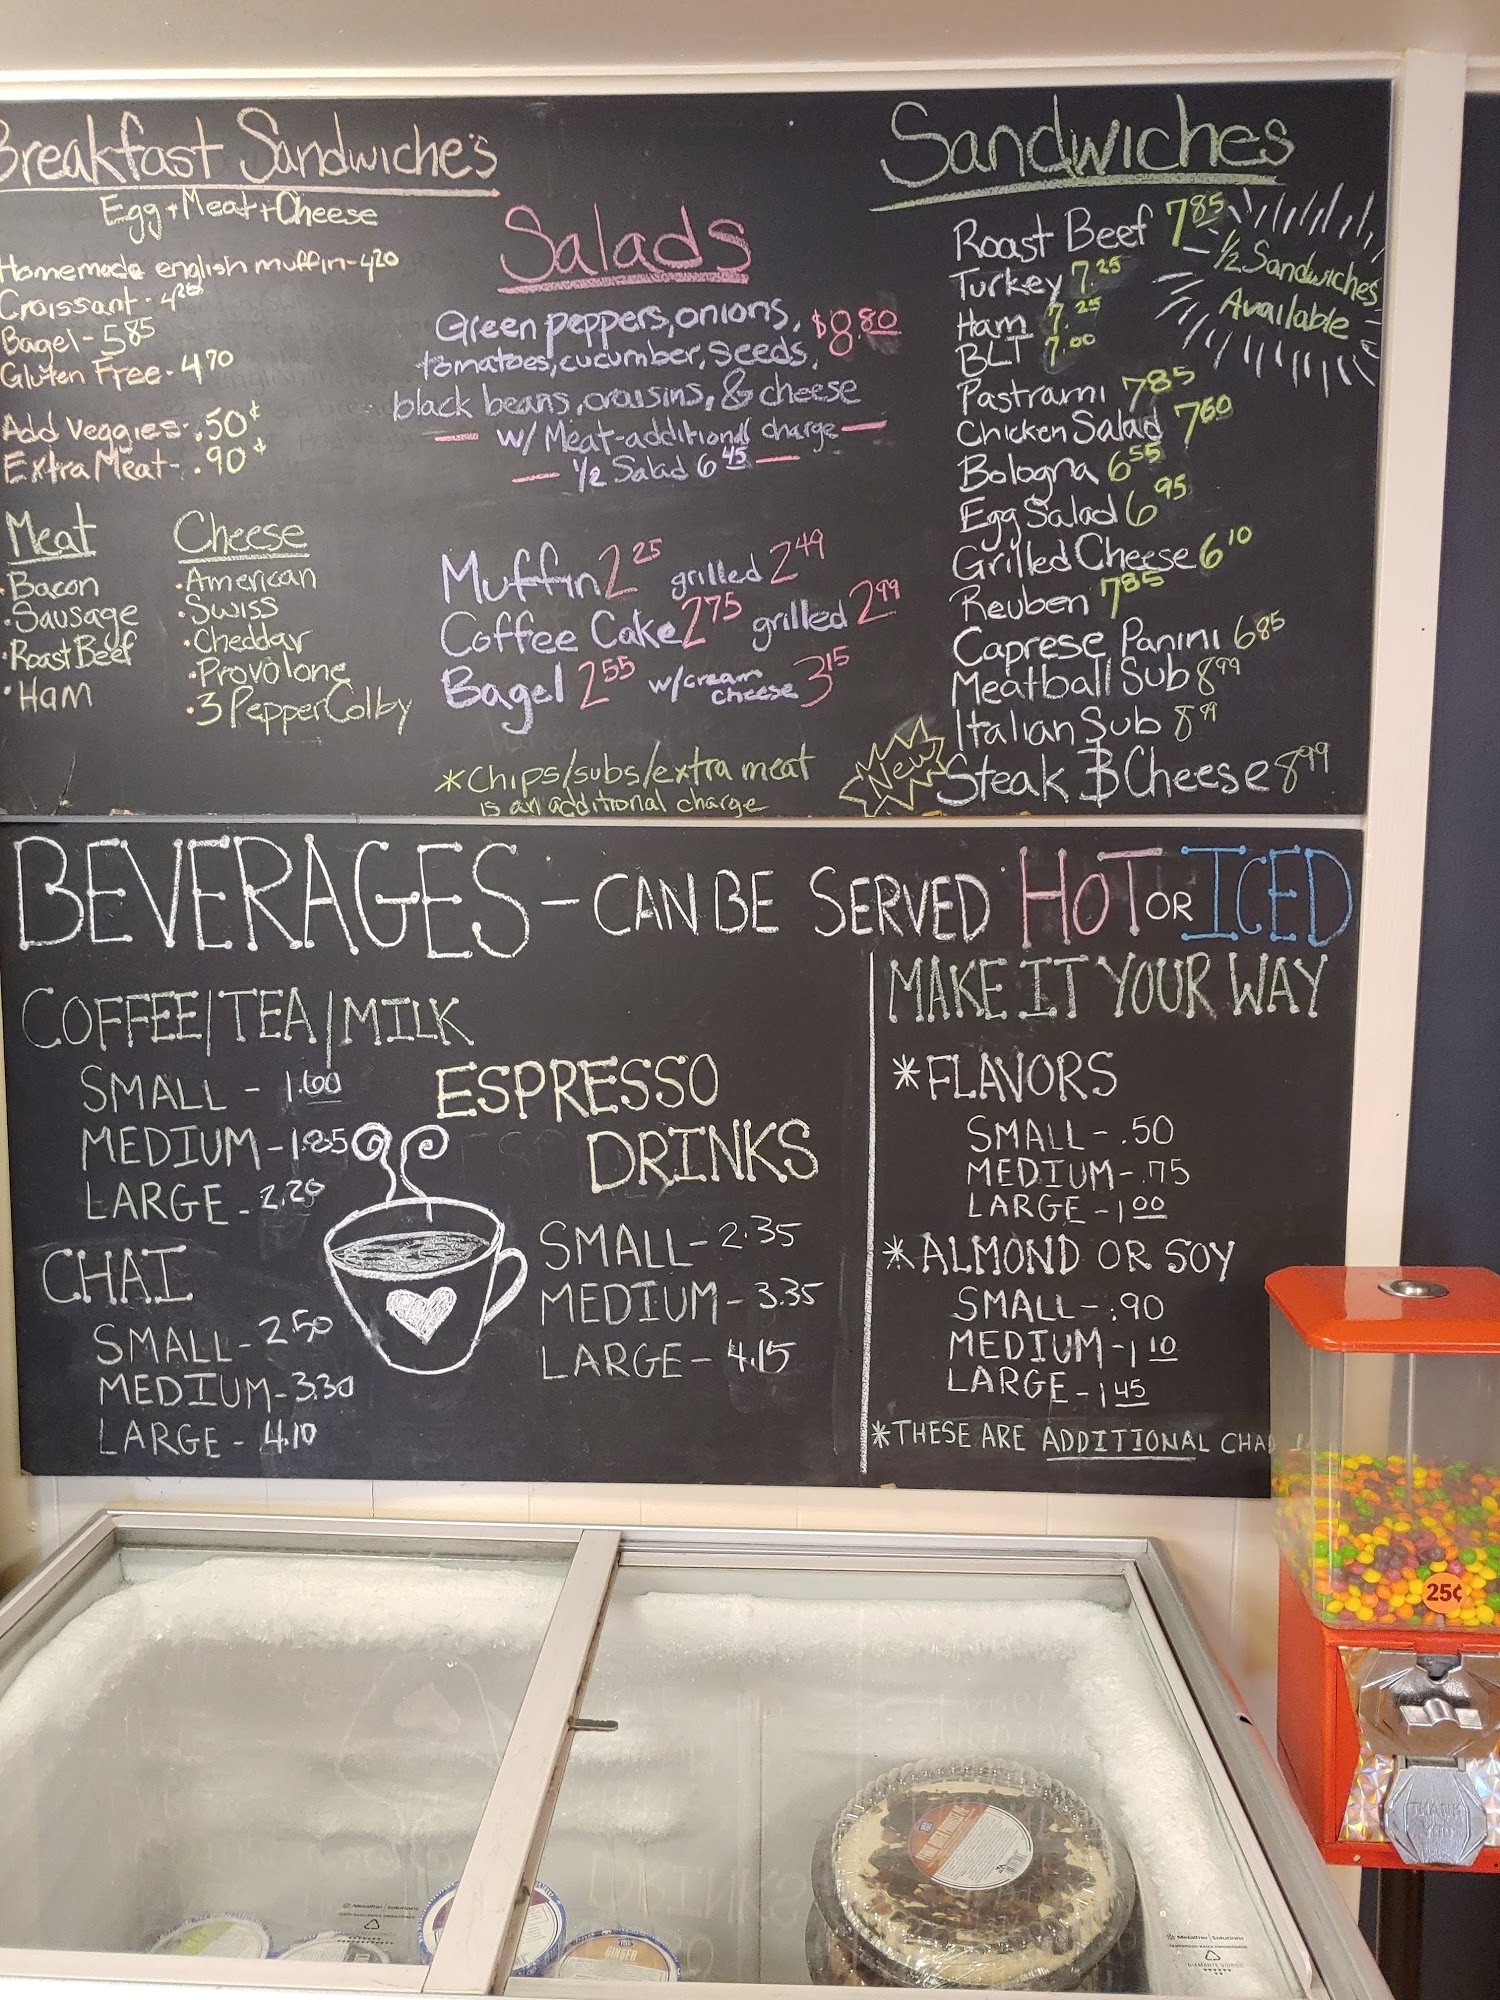 Breakfast Sandwiche's
Egg + Meat + Cheese
Homemade english muffin - 4.20
Croissant - 4.20
Bagel - 5.85
Gluten Free - 4.70
Add Veggies - .50¢
Extra Meat - .90¢
Meat
Bacon
Sausage
Roast Beef
Ham
Cheese
American
Swiss
Cheddar
Provolone
3 Pepper Colby
Salads
Green peppers, onions, $8.80
tomatoes, cucumber, seeds,
black beans, craisins, & cheese
w/ Meat-additional charge
1/2 Salad 6.45
Muffin 2.25 grilled 2.49
Coffee Cake 2.75 grilled 2.99
Bagel 2.55 w/cream cheese 3.15
*Chips/subs/extra meat
is an additional charge
Sandwiches
Roast Beef 7.85
Turkey 7.25
Ham 7.25
BLT 7.00
Pastrami 7.85
Chicken Salad 7.60
Bologna 6.55
Egg Salad 6.95
Grilled Cheese 6.10
Reuben 7.85
Caprese Panini 6.85
Meatball Sub 8.99
Italian Sub 8.99
New Steak & Cheese 8.99
1/2 Sandwiches
Available
BEVERAGES - CAN BE SERVED HOT OR ICED
COFFEE/TEA/MILK
SMALL - 1.60
MEDIUM - 1.85
LARGE - 2.20
CHAI
SMALL - 2.50
MEDIUM - 3.30
LARGE - 4.10
ESPRESSO
DRINKS
SMALL - 2.35
MEDIUM - 3.35
LARGE - 4.15
MAKE IT YOUR WAY
*FLAVORS
SMALL - .50
MEDIUM - .75
LARGE - 1.00
*ALMOND OR SOY
SMALL - .90
MEDIUM - 1.10
LARGE - 1.45
*THESE ARE ADDITIONAL CHA
25¢
THANK YOU
Metalfrio Solutions
Metalfrio Solutions
GINGER